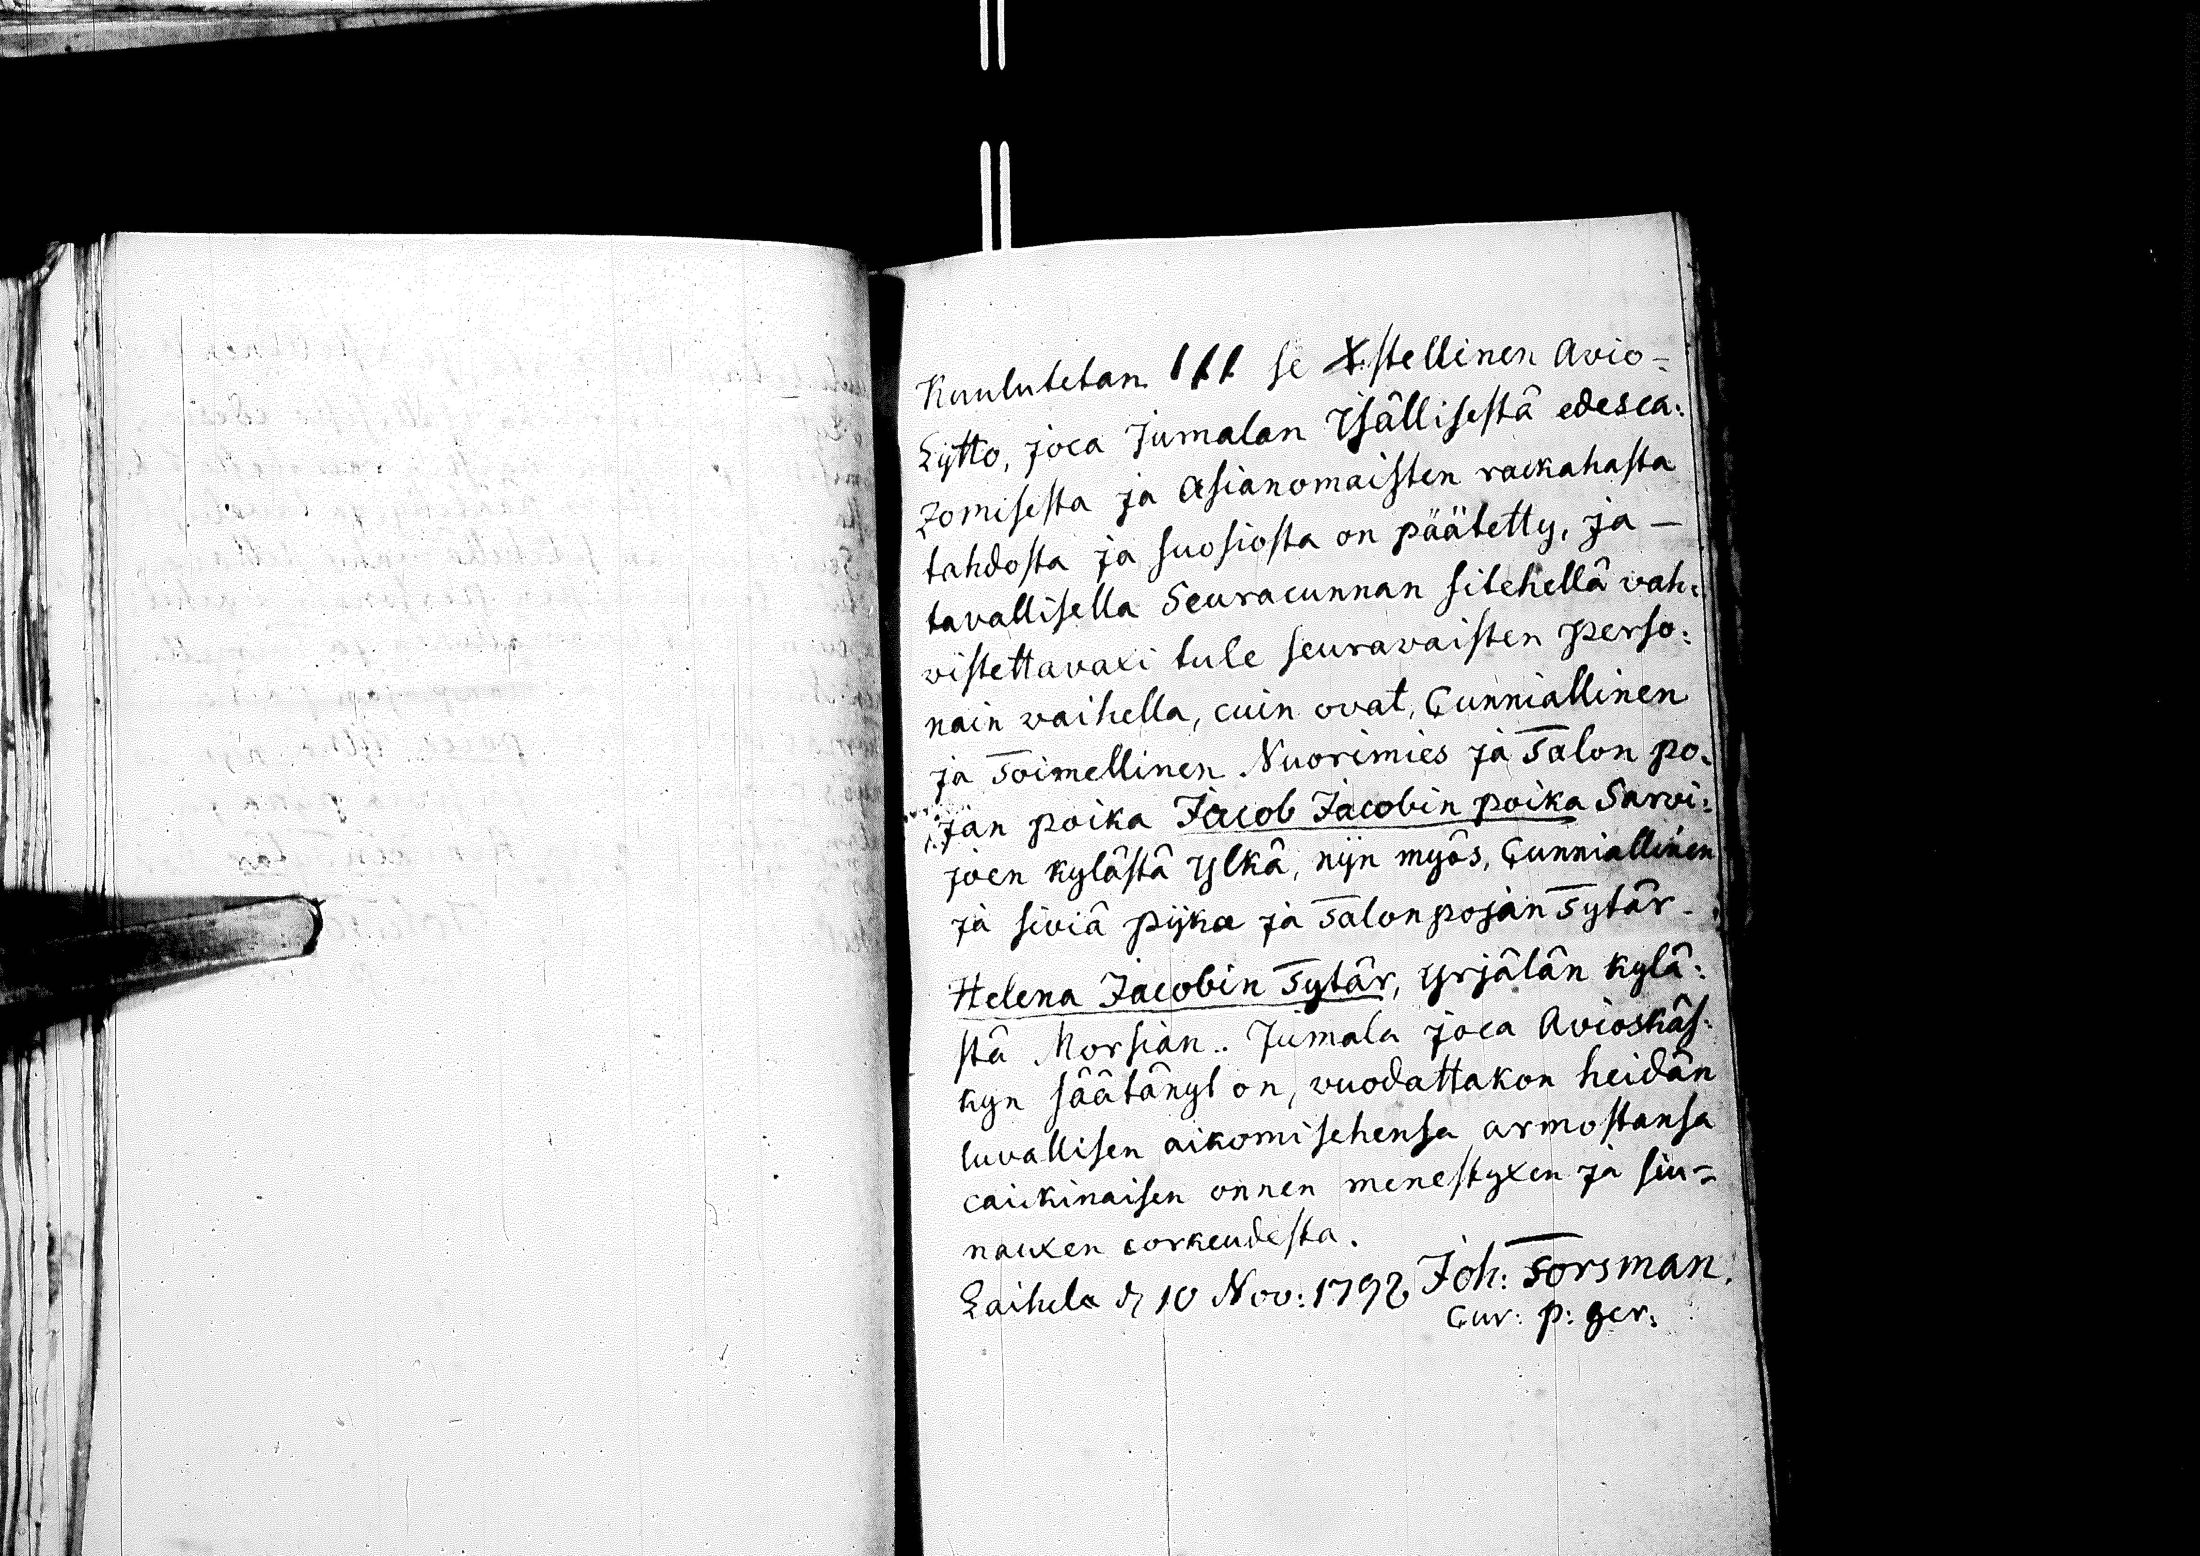 Kuulutetan 111 se Xstellinen Avio-
Lijtto, joca Jumalan Isällisestä edesca:
zomisesta ja Asianomaisten rackahasta
tahdosta ja suosiosta on päätetty, ja —
tavallisella Seuracunnan sitehellä vah:
vistettavaxi tule seuravaisten perso:
nain waihella, cuin ovat, Cunniallinen
ja Toimellinen Nuorimies ja Talon po:
jan poika Jacob Jacobin poika Sarvi:
joen kylästä Ylkä, nijn myös, Cunniallinen
ja siviä pijka ja Talonpojan Tytär
Helena Jacobin Tytär, Yrjälän kylä:
stä Morsian.. Jumala joca Avioskäs:
kyn säätänyt on, vuodattakon heidän
luvallisen aikomisehensa armostansa
caickinaisen onnen menestyxen ja siu-
nauxen corkeudesta.
Laihela d 10 Nov: 1792 Joh: Forsman.
Cur: p: ger: